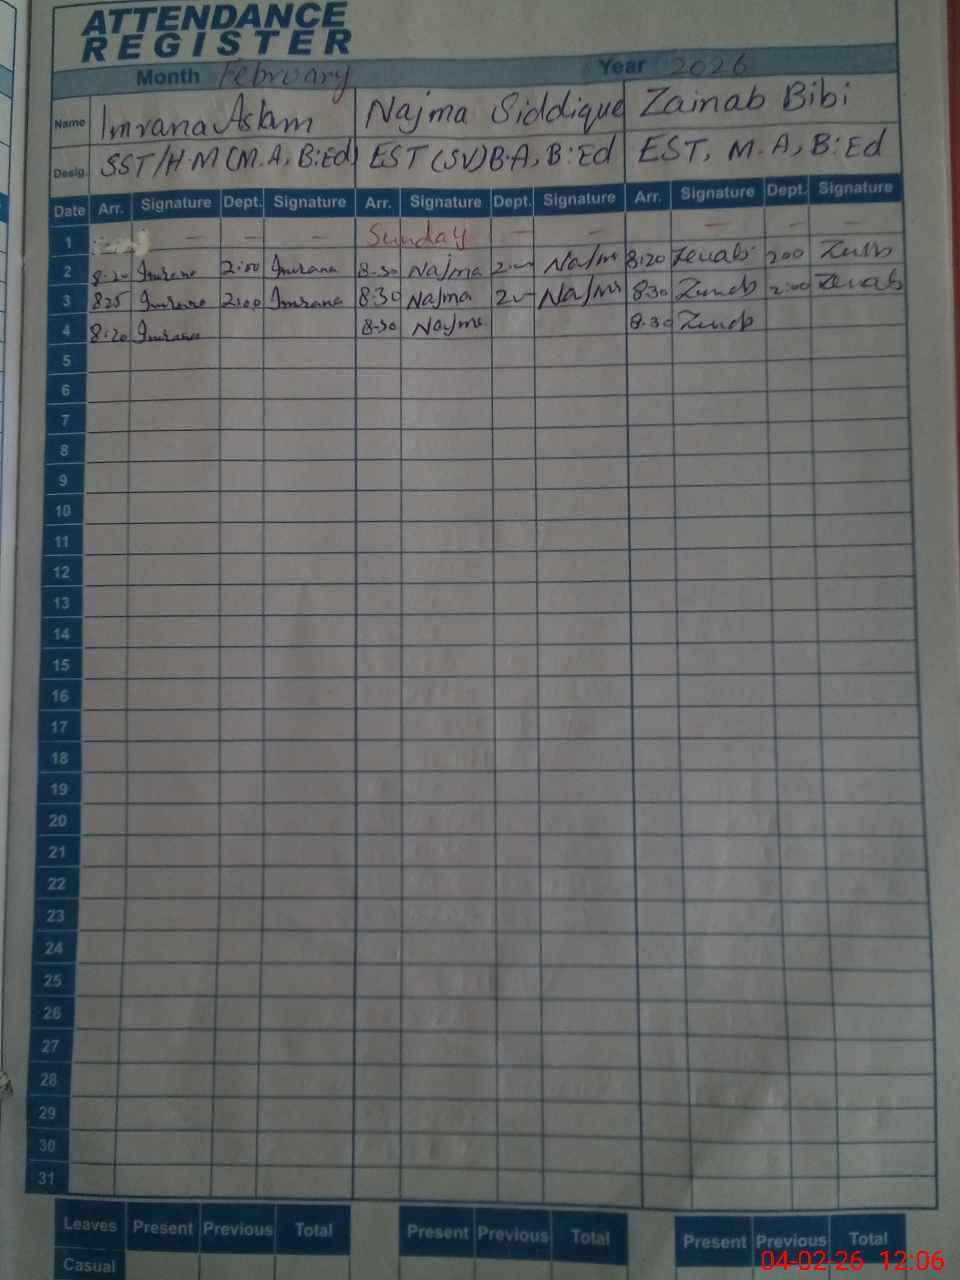 ATTENDANCE
REGISTER
Month February Year 2026
Name Imrana Aslam Najma Siddique Zainab Bibi
Desig. SST/H.M (M.A, B:Ed) EST (SV) B.A, B:Ed EST, M.A, B:Ed
Date Arr. Signature Dept. Signature Arr. Signature Dept. Signature Arr. Signature Dept. Signature
1 — — — Sunday — — — — —
2 8:20 Imrana 2:00 Imrana 8-30 Najma 2:— Najma 8:20 Zenab 200
3 825 Imrana 2:00 Imrana 8:30 Najma 2— Najma 8:30 Zenab 2:00 Zenab
4 8:20 Imrana 8-30 Najma 8.30 Zenab
5
6
7
8
9
10
11
12
13
14
15
16
17
18
19
20
21
22
23
24
25
26
27
28
29
30
31
Leaves Present Previous Total Present Previous Total Present Previous Total
Casual
04-02-26 12:06